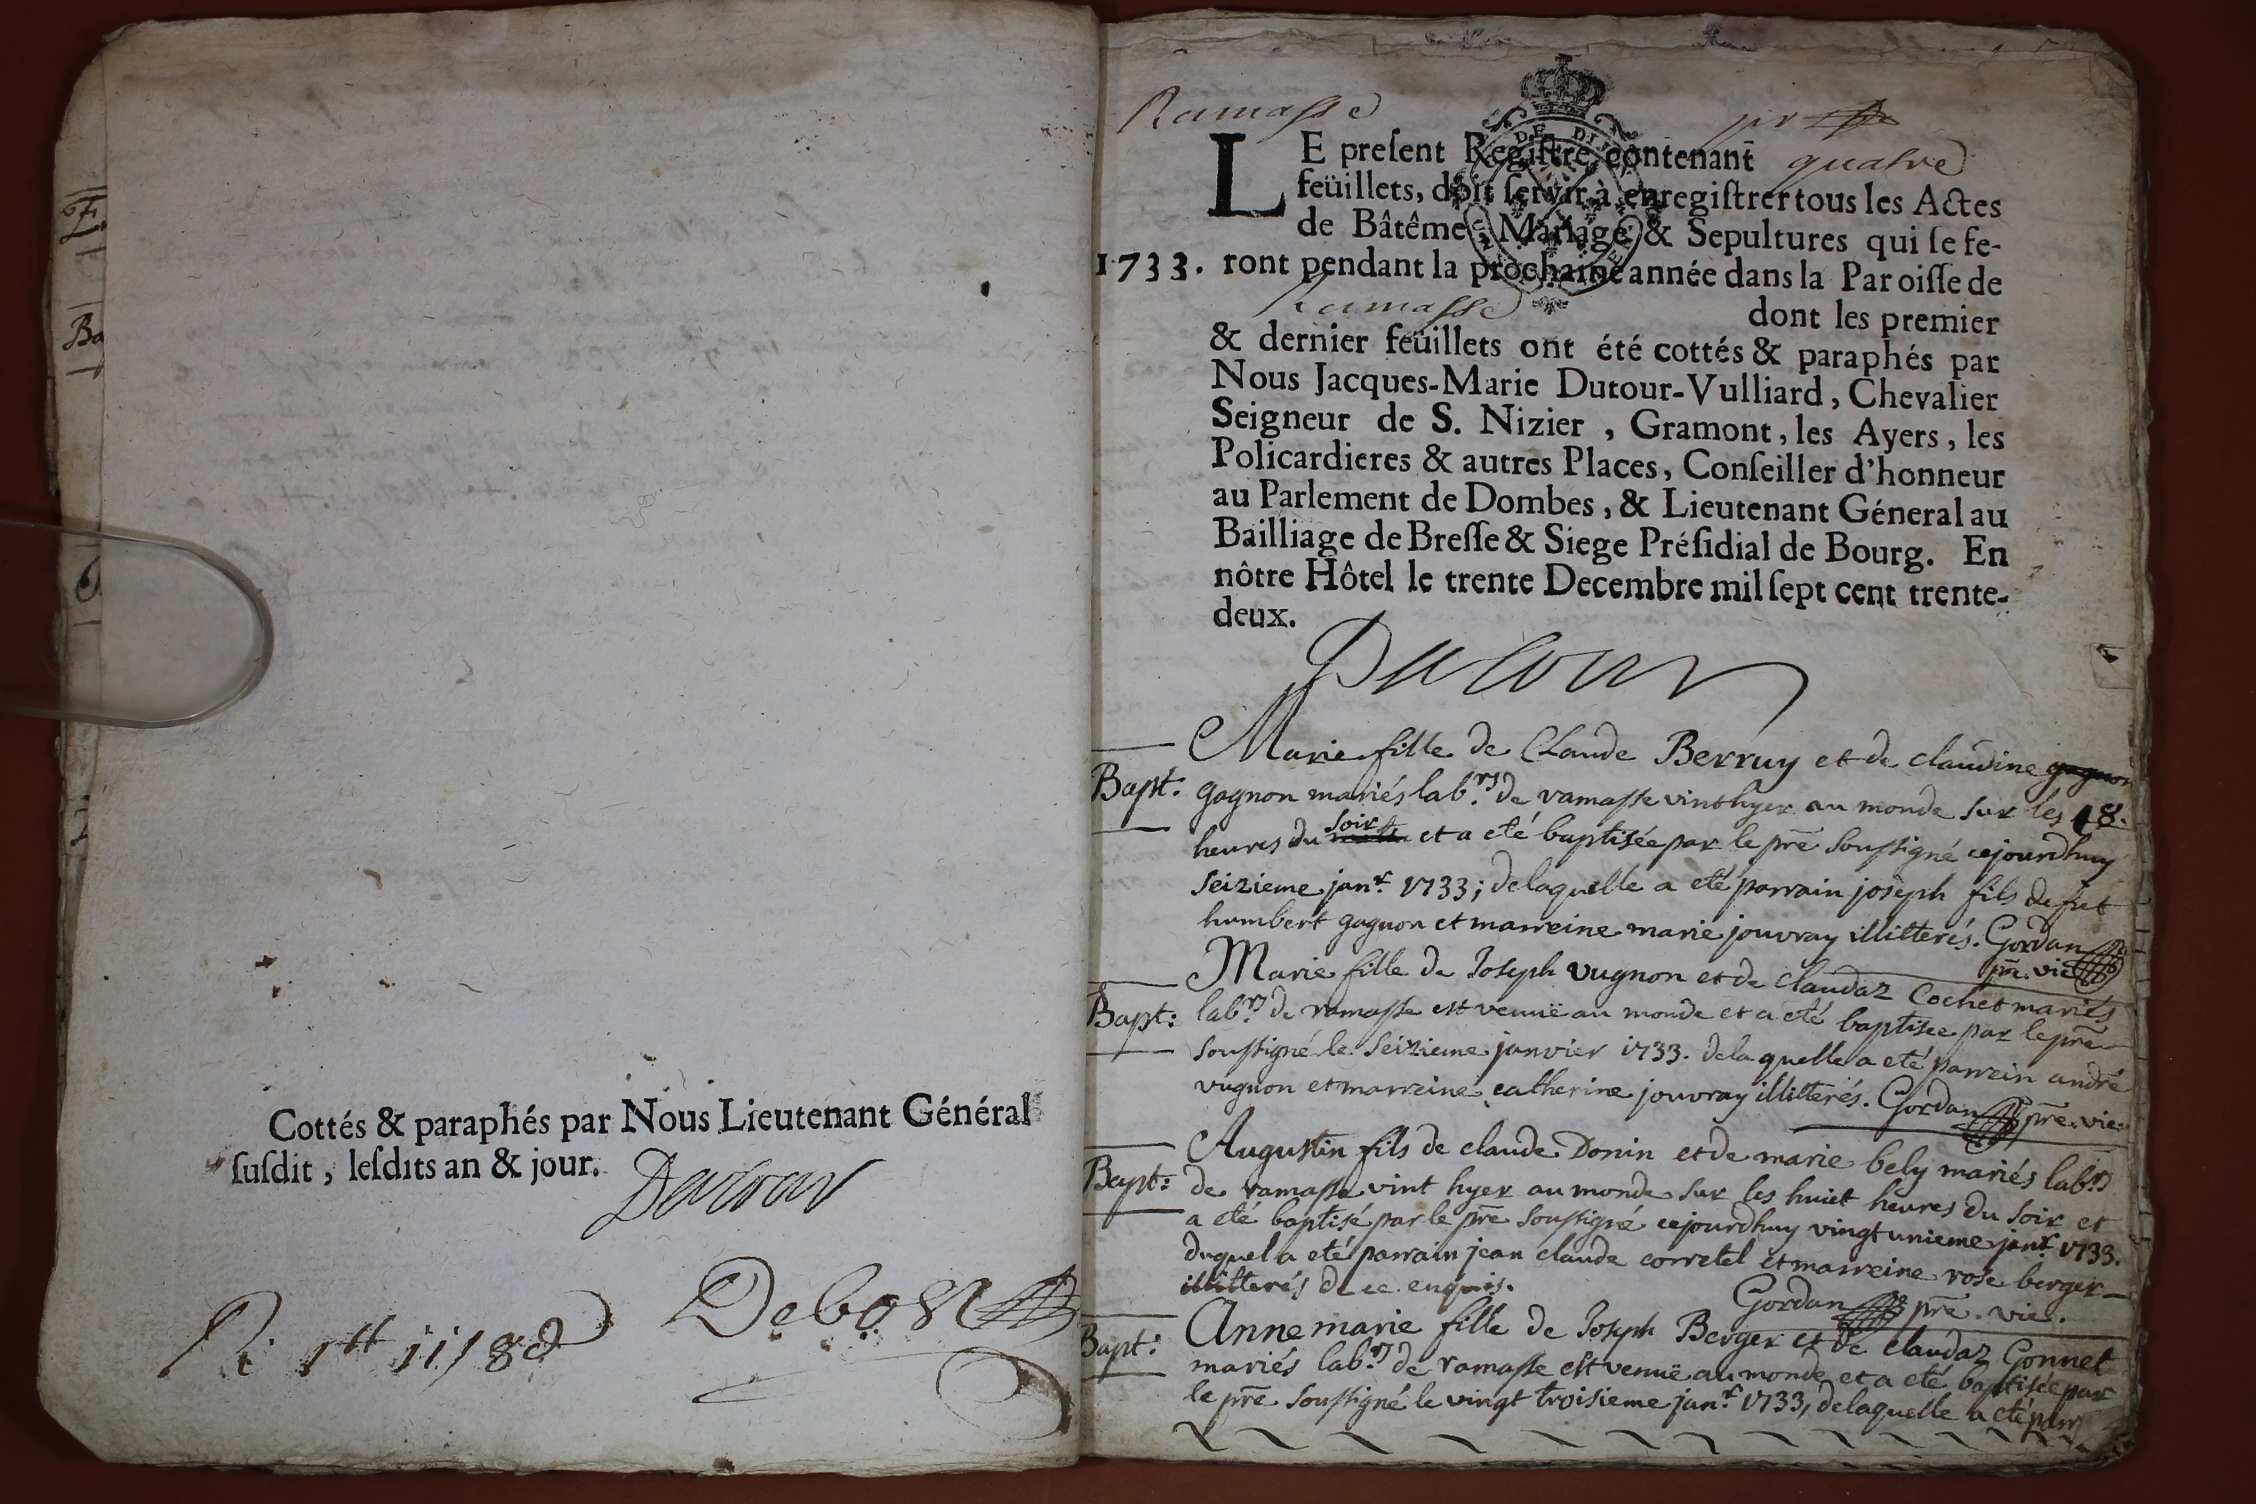 Cottés & paraphés par Nous Lieutenant Général
ſuſdit, leſdits an & jour.
Dutour
Debost
Ramasse
pr
LE preſent Regiſtre contenant quatre
feüillets, doit ſervir à enregiſtrer tous les Actes
de Bâtême, Mariage & Sepultures qui ſe fe-
1733. ront pendant la prochaine année dans la Paroiſſe de
Ramasse dont les premier
& dernier feüillets ont été cottés & paraphés par
Nous Jacques-Marie Dutour-Vulliard, Chevalier
Seigneur de S. Nizier, Gramont, les Ayers, les
Policardieres & autres Places, Conſeiller d'honneur
au Parlement de Dombes, & Lieutenant Géneral au
Bailliage de Breſſe & Siege Préſidial de Bourg. En
nôtre Hôtel le trente Decembre mil ſept cent trente-
deux.
Dutour
Marie fille de Claude Berruy et de claudine gagnon
Bapt: gagnon mariés lab.rs de ramasse vint hyer au monde sur les 8.
heures du soir et a eté baptisée par le prē soussigné cejourdhuy
seizieme jan.r 1733; delaquelle a eté parrain joseph fils de fut
humbert gagnon et marreine marie jouvray illitterés. Gordan
prē. vic.
Marie fille de Joseph vugnon et de claudaz Cochet mariés
Bapt: lab.rs de ramasse est venuë au monde et a eté baptisee par le prē
soussigné le seizieme janvier 1733. delaquelle a eté parrein andré
vugnon et marreine catherine jouvray illitterés. Gordan prē. vic.
Augustin fils de claude Donin et de marie bely mariés lab.rs
Bapt: de ramasse vint hyer au monde sur les huict heures du soir et
a eté baptisé par le prē soussigné cejourdhuy vingt unieme jan.r 1733.
duquel a eté parrain jean claude corretel et marreine rose berger
illitterés de ce enquis.
Gordan prē. vic.
Bapt: Anne marie fille de Joseph Berger et de claudaz Gonnet
mariés lab.rs de ramasse est venuë au monde et a eté baptisée par
le prē soussigné le vingt troisieme jan.r 1733, delaquelle a eté parr